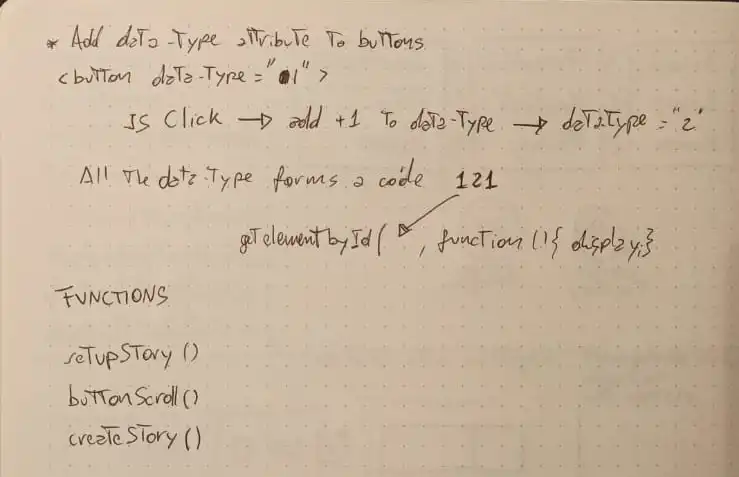 * Add data-Type attribute To buttons
<button data-Type="1">
JS Click → add +1 To data-Type → dataType = "2"
All The data-Type forms a code 121
getelementbyId( , function (){ display;}
FUNCTIONS
setupStory ()
buttonScroll ()
createStory ()